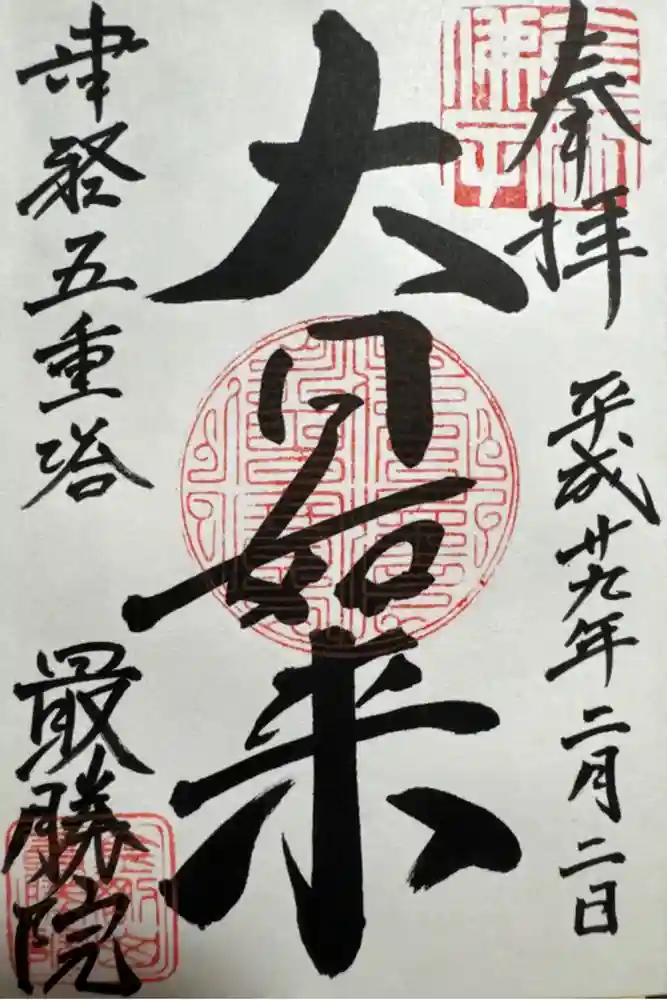 奉拝
平成廿九年二月二日
大日如来
津軽五重塔
最勝院